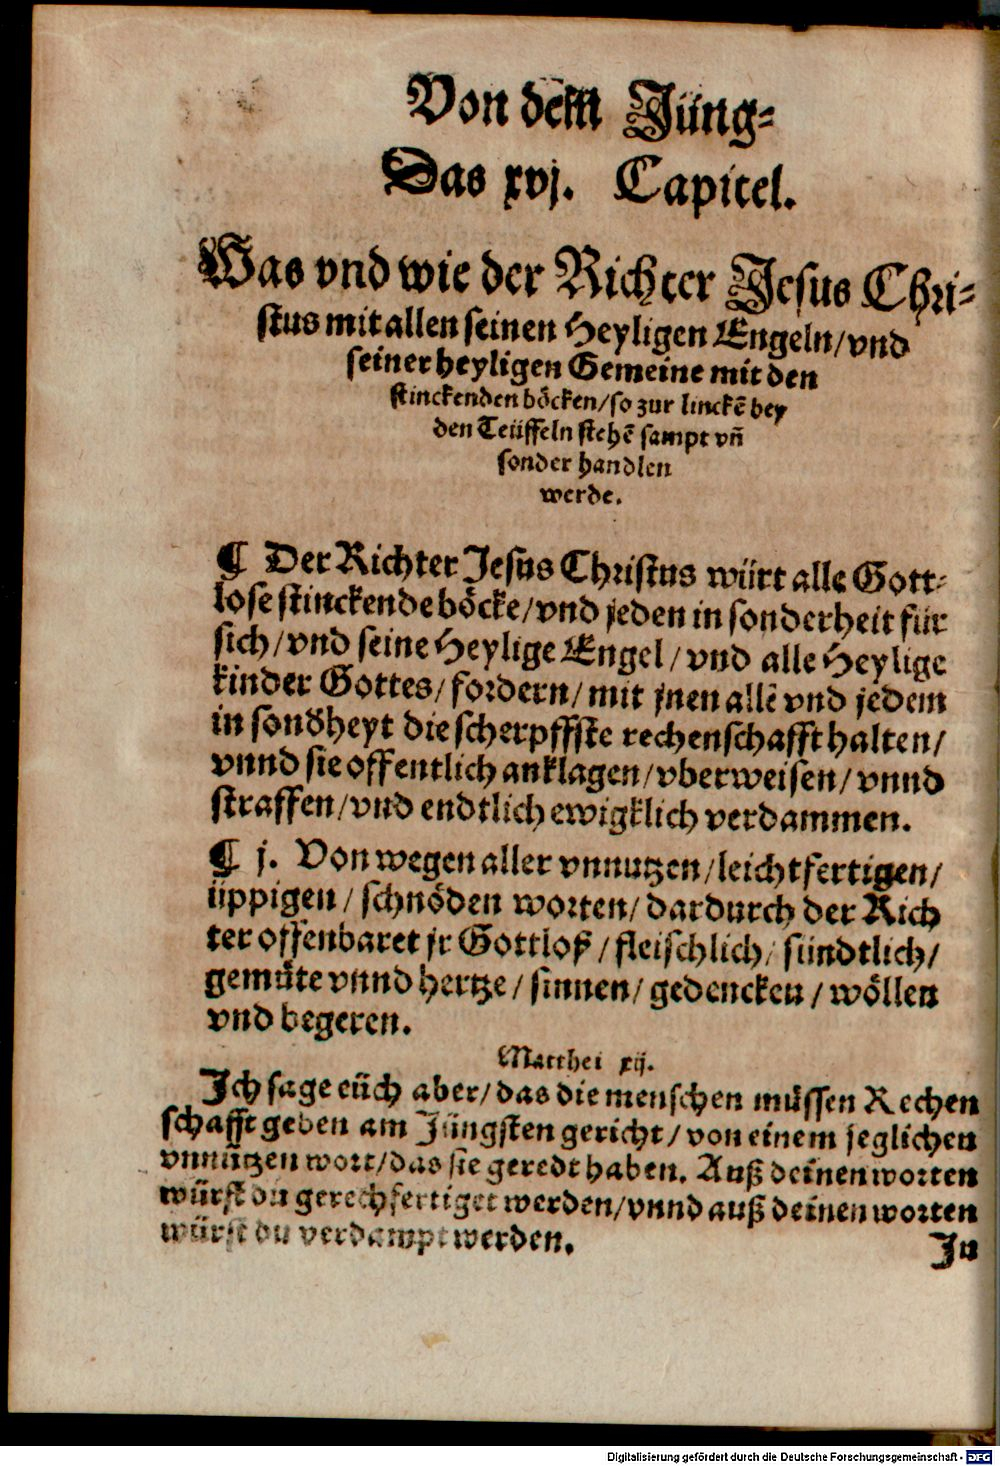 Von dem Jüng-
Das xvj. Capitel.
Was vnd wie der Richter Jesus Chri-
stus mit allen seinen Heyligen Engeln/ vnd
seiner heyligen Gemeine mit den
stinckenden böcken/ so zur linckē bey
den Teüffeln stehē sampt vñ
sonder handlen
werde.
¶ Der Richter Jesus Christus würt alle Gott-
lose stinckende böcke/ vnd jeden in sonderheit für
sich/ vnd seine Heylige Engel/ vnd alle Heylige
kinder Gottes/ fordern/ mit jnen allē vnd jedem
in sonđheyt die scherpffste rechenschafft halten/
vnnd sie offentlich anklagen/ vberweisen/ vnnd
straffen/ vnd endtlich ewigklich verdammen.
¶ j. Von wegen aller vnnutzen/ leichtfertigen/
üppigen/ schnöden worten/ dardurch der Rich
ter offenbaret jr Gottloß/ fleischlich/ sündtlich/
gemüte vnnd hertze/ sinnen/ gedencken/ wöllen
vnd begeren.
Matthei xij.
Jch sage eüch aber/ das die menschen müssen Rechen
schafft geben am Jüngsten gericht/ von einem jeglichen
vnnutzen wort/ das sie geredt haben. Auß deinen worten
würst du gerechfertiget werden/ vnnd auß deinen worten
würst du verdampt werden.
Jn
Digitalisierung gefördert durch die Deutsche Forschungsgemeinschaft - DFG